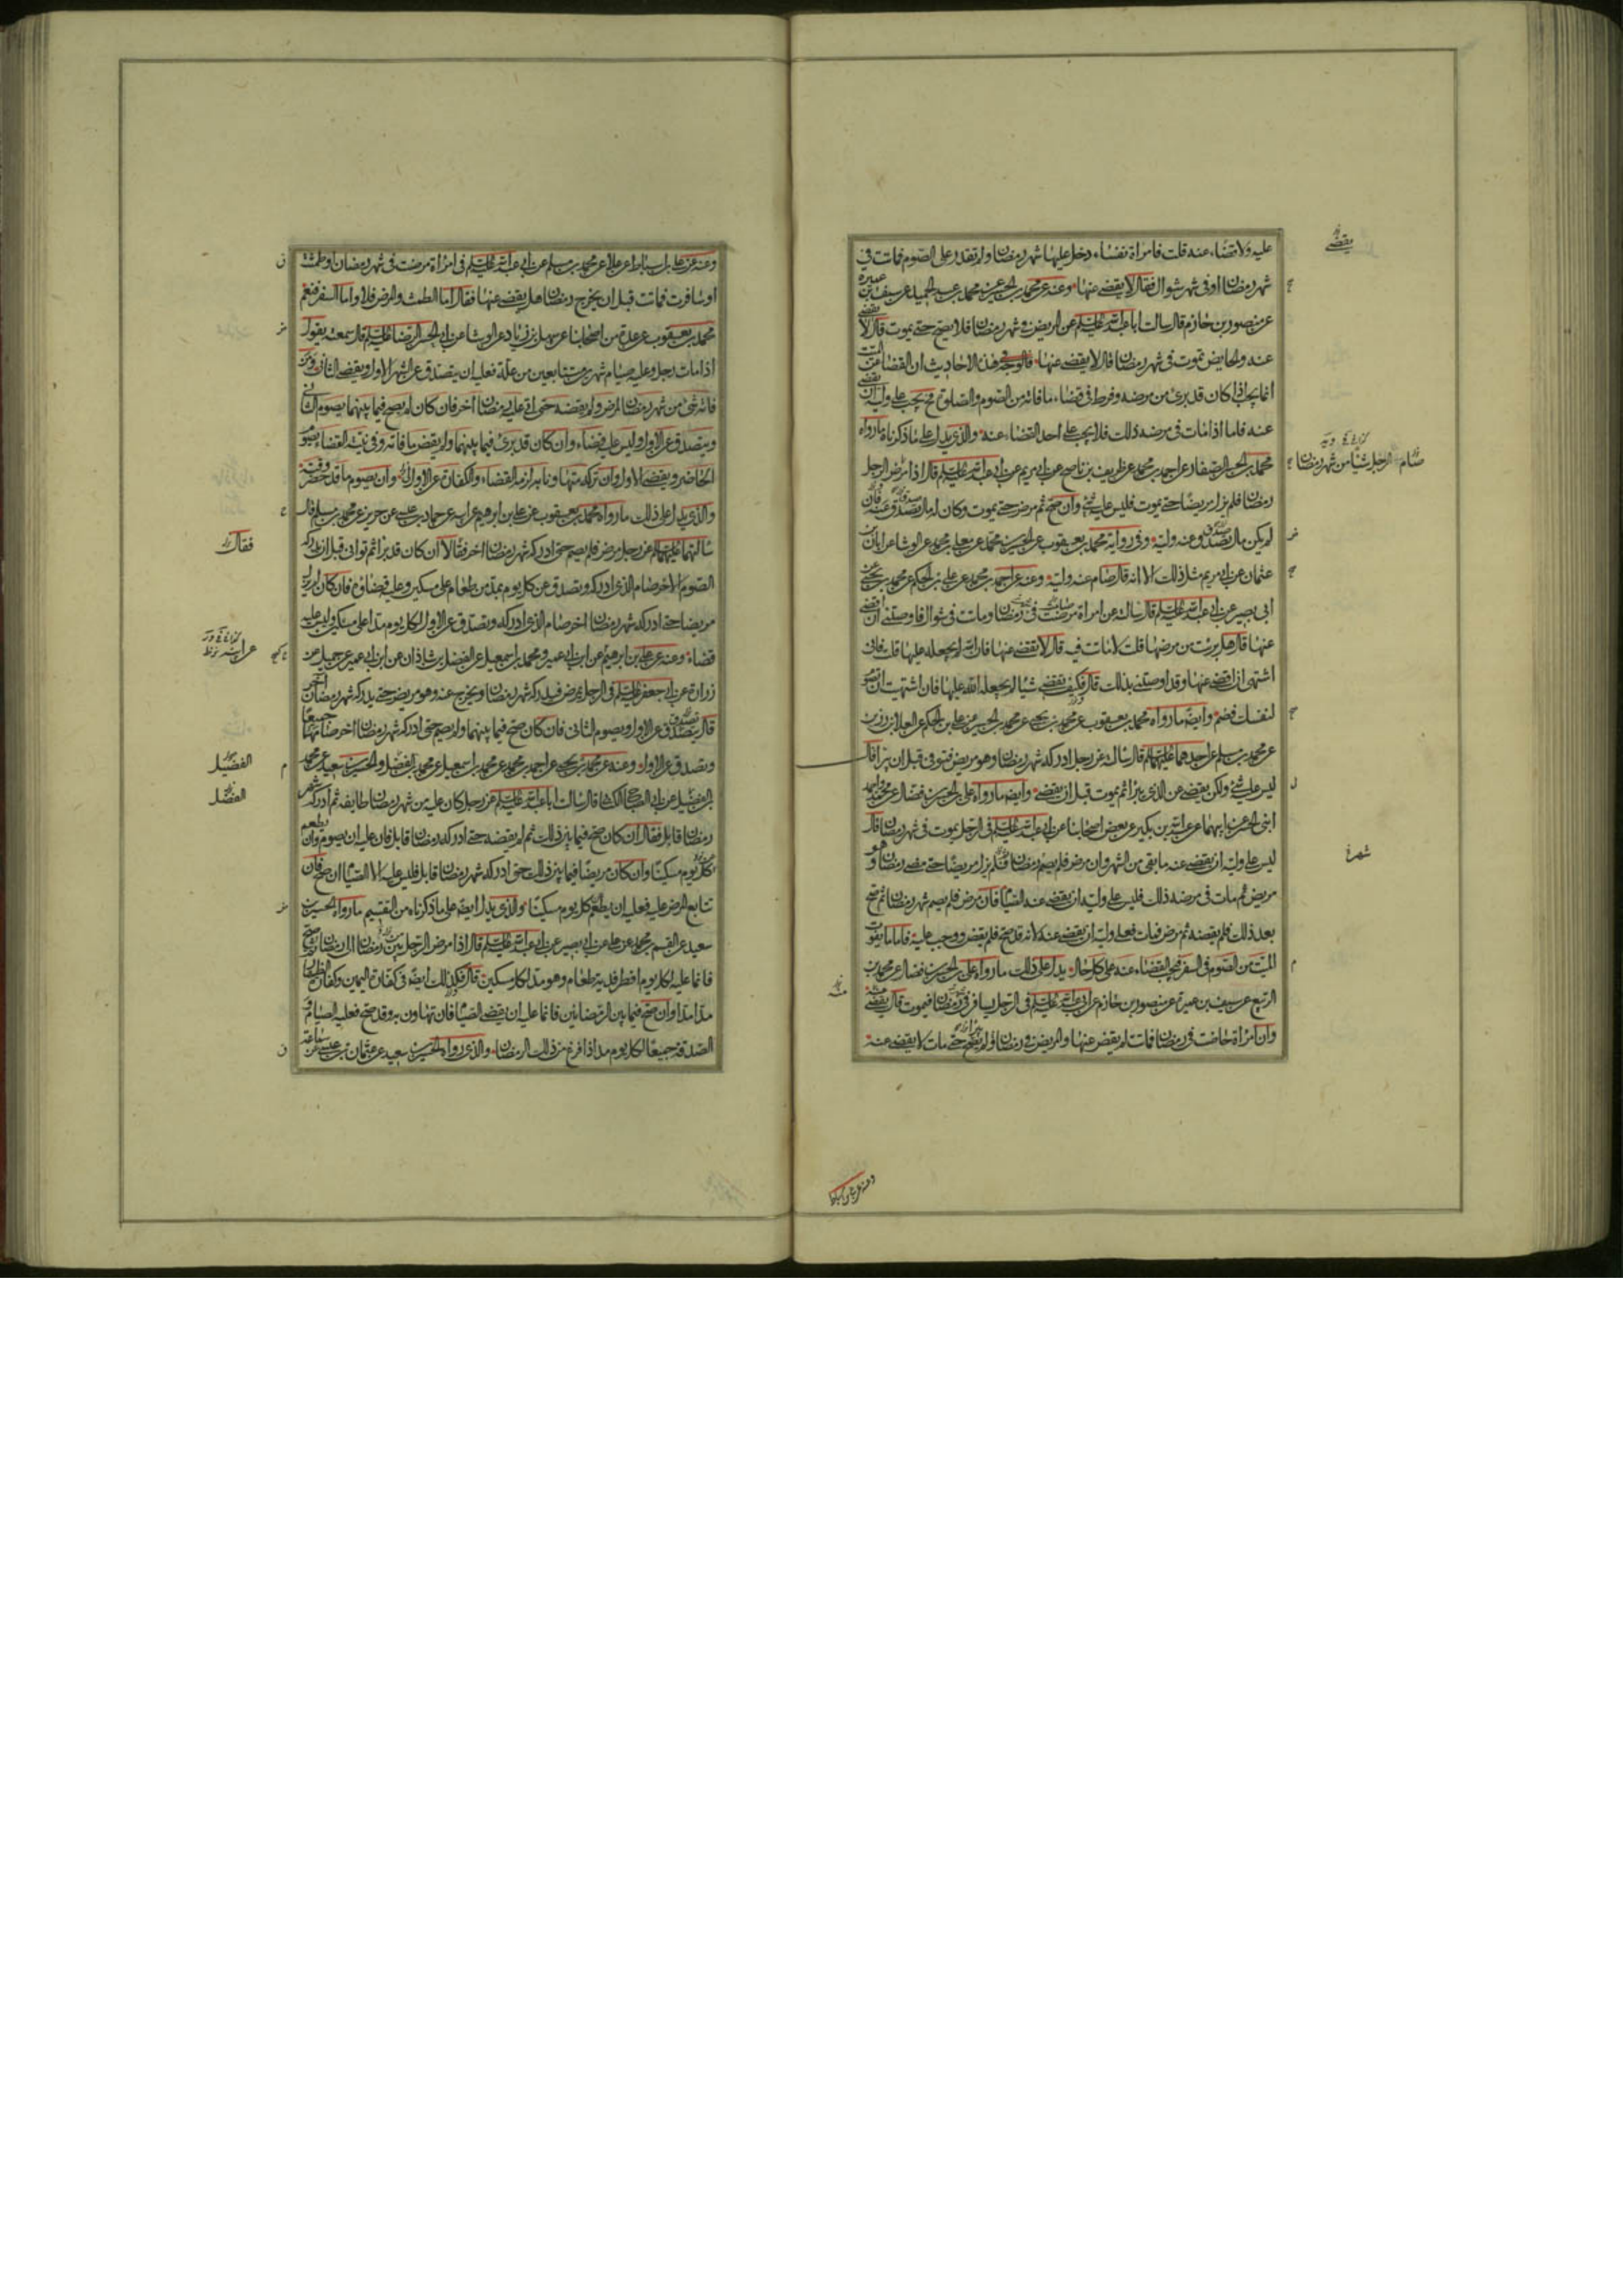 عليه ولا قضاء عنه قلت فامراة نفساء دخل عليها شهر رمضان ولم تقدر على الصوم فماتت في
شهر رمضان او في شهر شوال فقال لا يقضى عنها وعنه عن محمد بن الحسين عن محمد بن عبد الحميد عن سيف بن عميرة
عن منصور بن حازم قال سالت ابا عبد الله عليه السلم عن المريض في شهر رمضان فلا يصح حتى يموت قال لا يقضى
عنه والحايض تموت في شهر رمضان قال لا يقضى عنها فالوجه في هذه الاحاديث ان القضا عن الميت
انما يجب اذا كان قد برئ من مرضه وفرط في قضاء ما فاته من الصوم والصلوة فح يجب على وليه ان يقضى
عنه فاما اذا مات في مرضه ذلك فلا يجب على احد القضاء عنه والذي يدل على ما ذكرناه ما رواه
محمد بن الحسن الصفار عن احمد بن محمد عن ظريف بن ناصح عن ابي مريم عن ابي عبد الله عليه السلم قال اذا مرض الرجل
رمضان فلم يزل مريضا حتى يموت فليس عليه شئ وان صح ثم مرض حتى يموت وكان له مال تصدق عنه فان
لم يكن له مال تصدق عنه وليه وفي رواية محمد بن يعقوب عن الحسين بن محمد عن معلى بن محمد عن الوشا عن ابان بن
عثمان عن ابي مريم مثل ذلك الا انه قال صام عنه وليه وعنه عن احمد بن محمد عن علي بن الحكم عن محمد بن يحيى عن
ابي بصير عن ابي عبد الله عليه السلم قال سالته عن امراة مرضت في رمضان وماتت في شوال فاوصتني ان اقضى
عنها قال هل برئت من مرضها قلت لا ماتت فيه قال لا تقضى عنها فان الله لم يجعله عليها قلت فاني
اشتهى ان اقضى عنها وقد اوصتني بذلك قال فكيف تقضى شيئا لم يجعله الله عليها فان اشتهيت ان تصوم
لنفسك فصم وايضا ما رواه محمد بن يعقوب عن محمد بن يحيى عن محمد بن الحسين عن علي بن الحكم عن العلا بن رزين
عن محمد بن مسلم عن احدهما عليهما السلم قال سالته عن رجل ادركه شهر رمضان وهو مريض فتوفى قبل ان يبرا قال
ليس عليه شئ ولكن يقضى عن الذي يبرا ثم يموت قبل ان يقضى وايضا ما رواه علي بن الحسن بن فضال عن محمد واحمد
ابني الحسن عن ابيهما عن عبد الله بن بكير عن بعض اصحابنا عن ابي عبد الله عليه السلم في الرجل يموت في شهر رمضان قال
ليس على وليه ان يقضى عنه ما بقى من الشهر وان مرض فلم يصم رمضان ثم لم يزل مريضا حتى مضى رمضان وهو
مريض ثم مات في مرضه ذلك فليس على وليه ان يقضى عنه الصيام فان مرض فلم يصم شهر رمضان ثم صح
بعد ذلك فلم يقضه ثم مرض فمات فعلى وليه ان يقضى عنه لانه قد صح فلم يقض ووجب عليه فاما ما يفوت
الميت من الصوم في السفر فيجب القضاء عنه على كل حال يدل على ذلك ما رواه علي بن الحسن بن فضال عن محمد بن
الربيع عن سيف بن عميرة عن منصور بن حازم عن ابي عبد الله عليه السلم في الرجل يسافر في رمضان فيموت قال يقضى عنه
وان امراة حاضت في رمضان فماتت لم يقض عنها والمريض في رمضان ولم يصح حتى مات لا يقضى عنه
يقضى
صام الرجل شيئا من شهر رمضان
شهر
وعنه عن علي بن اسباط
وعنه عن علي بن اسباط عن علا عن محمد بن مسلم عن ابي عبد الله عليه السلم في امراة مرضت في شهر رمضان او طمثت
او سافرت فماتت قبل ان يخرج رمضان هل يقضى عنها فقال اما الطمث والمرض فلا واما السفر فنعم
محمد بن يعقوب عن عدة من اصحابنا عن سهل بن زياد عن الوشا عن ابي الحسن الرضا عليه السلم قال سمعته يقول
اذا مات رجل وعليه صيام شهرين متتابعين من علة فعليه ان يتصدق عن الشهر الاول ويقضى الثاني ومن
فاته شئ من شهر رمضان لمرض ولم يقضه حتى اتى عليه رمضان اخر فان كان لم يصح فيما بينهما يصوم الثاني
ويتصدق عن الاول وليس عليه قضاء وان كان قد برئ فيما بينهما ولم يقض ما فاته وفي نيته القضاء يصوم
الحاضر ويقضى الاول وان تركه متهاونا به لزمه القضاء والكفارة عن الاول وان يصوم ما قد حضر وقته
والذي يدل على ذلك ما رواه محمد بن يعقوب عن علي بن ابراهيم عن ابيه عن حماد بن عيسى عن حريز عن محمد بن مسلم قال
سالتهما عليهما السلم عن رجل مرض فلم يصم حتى ادركه شهر رمضان اخر فقالا ان كان قد برا ثم توانى قبل ان يدركه
الصوم الاخر صام الذي ادركه وتصدق عن كل يوم بمد من طعام على مسكين وعليه قضاؤه فان كان لم يزل
مريضا حتى ادركه شهر رمضان اخر صام الذي ادركه وتصدق عن الاول لكل يوم مدا على مسكين وليس عليه
قضاء وعنه عن علي بن ابراهيم عن ابن ابي عمير ومحمد بن اسمعيل عن الفضل بن شاذان عن ابن ابي عمير عن جميل عن
زرارة عن ابي جعفر عليه السلم في الرجل يمرض فيدركه شهر رمضان ويخرج عنه وهو مريض حتى يدركه شهر رمضان اخر
قال يتصدق عن الاول ويصوم الثاني فان كان صح فيما بينهما ولم يصم حتى ادركه شهر رمضان اخر صامهما جميعا
وتصدق عن الاول وعنه عن محمد بن يحيى عن احمد بن محمد عن محمد بن اسمعيل عن محمد بن الفضل والحسين بن سعيد عن محمد
بن الفضيل عن ابي الصباح الكناني قال سالت ابا عبد الله عليه السلم عن رجل كان عليه من شهر رمضان طايفة ثم ادركه شهر
رمضان قابل فقال ان كان صح فيما بين ذلك ثم لم يقضه حتى ادركه رمضان قابل فان عليه ان يصوم وان يطعم
كل يوم مسكينا وان كان مريضا فيما بين ذلك حتى ادركه شهر رمضان قابل فليس عليه الا الصيام ان صح فان
تتابع المرض عليه فعليه ان يطعم كل يوم مسكينا والذي يدل ايضا على ما ذكرناه من التقسيم ما رواه الحسين بن
سعيد عن القسم بن محمد عن علي عن ابي بصير عن ابي عبد الله عليه السلم قال اذا مرض الرجل من رمضان الى رمضان ثم صح
فانما عليه لكل يوم افطر فدية طعام وهو مد لكل مسكين قال فكذلك ايضا في كفارة اليمين وكفارة الظهار
مدا مدا وان صح فيما بين الرمضانين فانما عليه ان يقضى الصيام فان تهاون به وقد صح فعليه الصيام و
الصدقة جميعا لكل يوم مد اذا فرغ من ذلك الرمضان والذي رواه الحسين بن سعيد عن عثمان بن عيسى عن سماعة
فقال
عن ابيه
الفضيل
الفضل